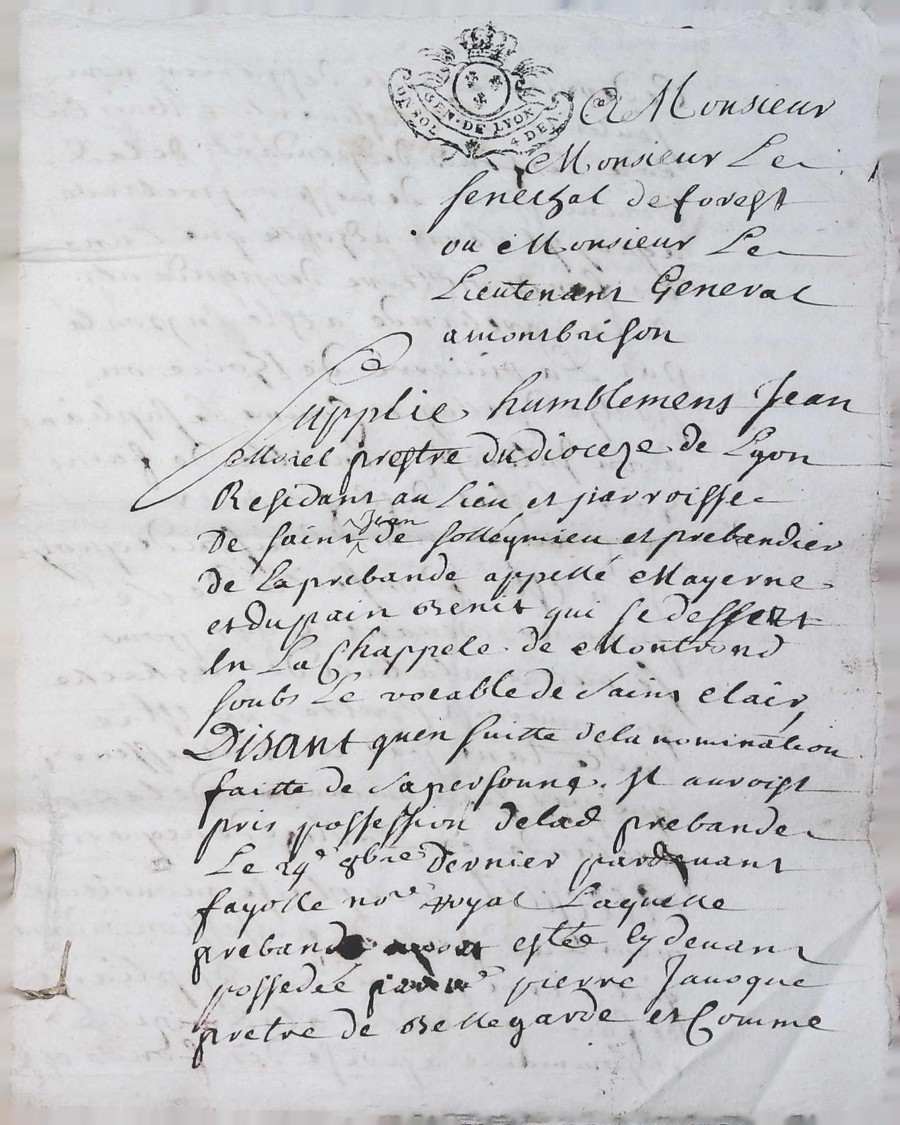 GEN. DE LYON
UN SOL 4 DEN.
A Monsieur
Monsieur Le
senechal de forest
ou Monsieur Le
Lieutenant General
a montbrison
Supplie humblement Jean
Morel prestre du dioceze de Lyon
Residant au Lieu et parroisse
De saint Jean de solleymieu et prebandier
de La prebande appellé Mayerne
et du pain Benit qui se dessert
En La Chappele de Montrond
soubs Le vocable de saint Clair,
Disant quen suitte de la nomination
faitte de sa personne. Il auroist
pris possession de lad prebande
Le 29e 8bre Dernier pardevant
fayolle nore Royal Laquelle
prebande estée cy devant
possedée par me pierre Javoque
pretre de Bellegarde et Comme